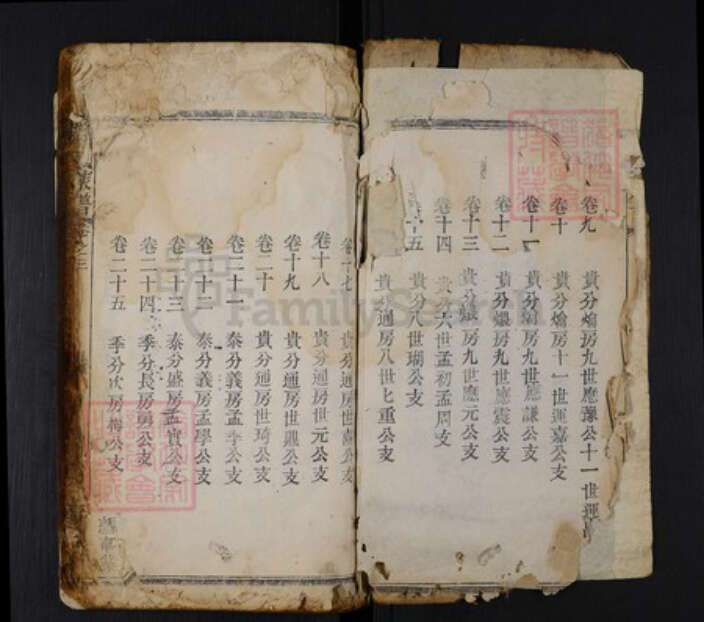 卷九 貴分煥房九世應豫公十一世運
卷十 貴分煥房十一世運嘉公支
卷十一 貴分煥房九世應謙公支
卷十二 貴分煅房九世應震公支
卷十三 貴分煅房九世應元公支
卷十四 貴分六世孟初孟周支
十五 貴分八世瑚公支
貴分通房八世七重公支
十七 貴分通房世
卷十八 貴分通房世元公支
卷十九 貴分通房世鼎公支
卷二十 貴分通房世琦公支
卷二十一 泰分義房孟季公支
卷二十二 泰分義房孟學公支
卷二十三 泰分盛房孟寶公支
卷二十四 季分長房興公支
卷二十五 季分次房梅公支
族譜卷之三
FamilySearch